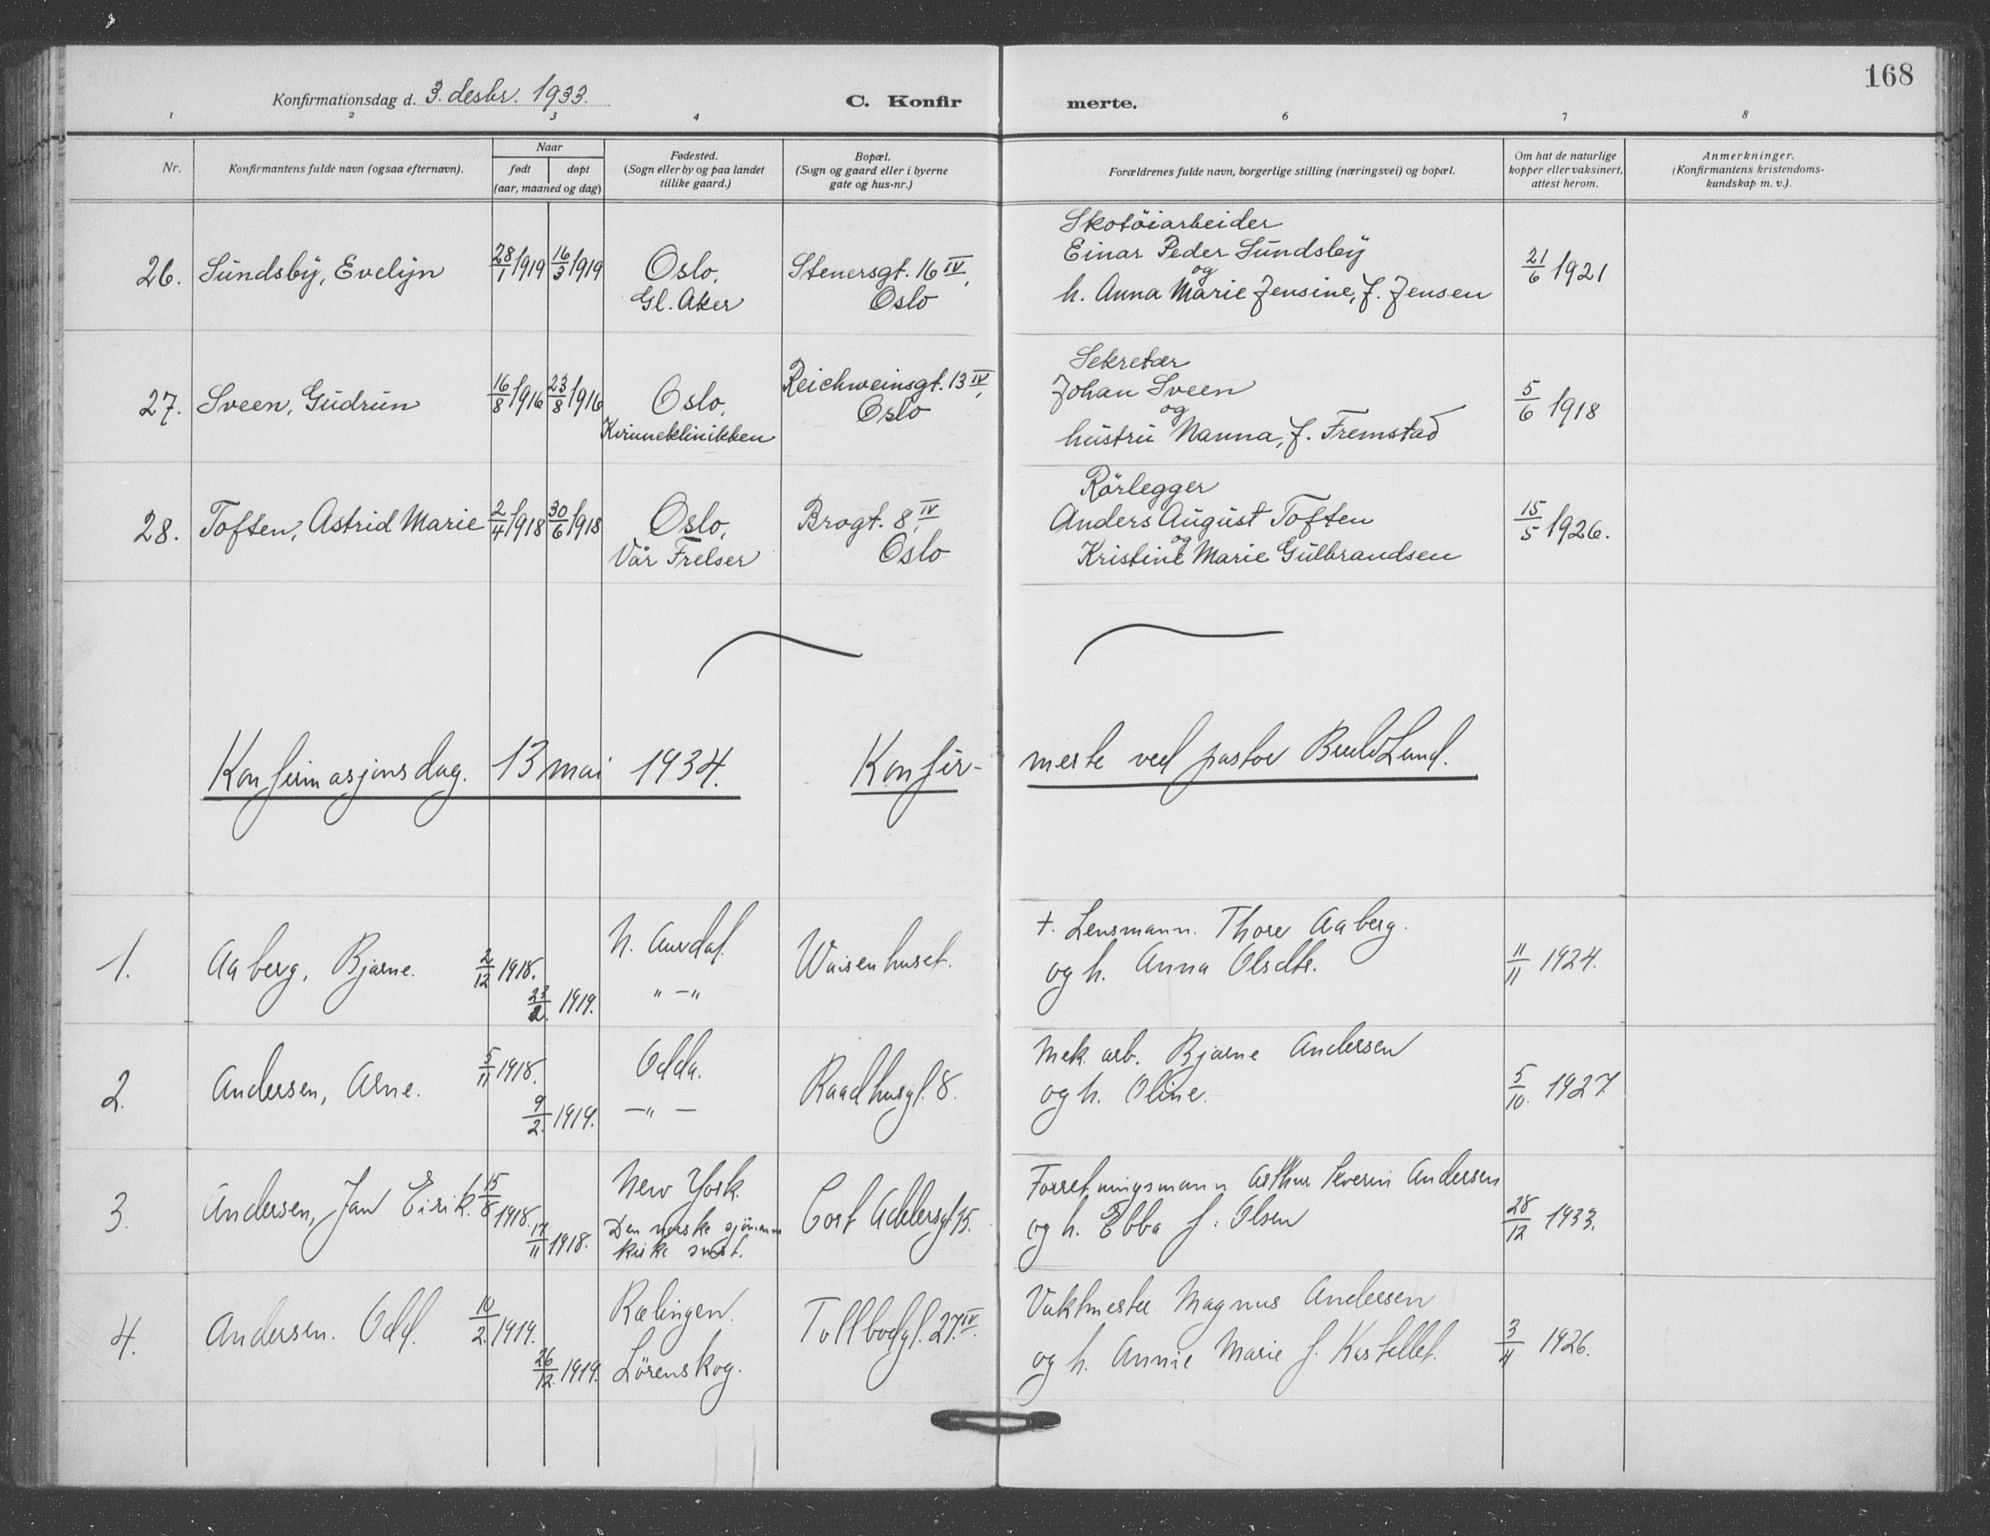 168
Konfirmationsdag d. 3. desbr. 1933.
C. Konfirmerte.
1 2 3 4 6 7 8
Nr.
Konfirmantens fulde navn (ogsaa efternavn).
Naar
født døpt
(aar, maaned og dag)
Fødested.
(Sogn eller by og paa landet
tillike gaard.)
Bopæl.
(Sogn og gaard eller i byerne
gate og hus-nr.)
Forældrenes fulde navn, borgerlige stilling (næringsvei) og bopæl.
Om hat de naturlige
kopper eller vaksinert,
attest herom.
Anmerkninger.
(Konfirmantens kristendoms-
kundskap m. v.).
26. Sundsby, Evelyn 28/1 1919 16/3 1919 Oslo, Gl. Aker
Stenersgt. 16 IV, Oslo
Skotöiarbeider
Einar Peder Sundsby
og
h. Anna Marie Jensine, f. Jensen
21/6 1921
27. Sveen, Gudrun 16/8 1916 23/8 1916 Oslo, Kvinneklinikken
Reichweinsgt. 13 IV, Oslo
Sekretær
Johan Sveen
og
hustru Nanna, f. Fremstad
5/6 1918
28. Toften, Astrid Marie 2/4 1918 30/6 1918 Oslo, Vår Frelser
Brogt. 8, IV Oslo
Rörlegger
Anders August Toften
og
Kristine Marie Gulbrandsen
15/5 1926.
Konfirmasjonsdag. 13 mai 1934. Konfir-
merte ved pastor Lund.
1. Aaberg, Bjarne. 2/12 1918. 23/2. 1919. N. Aurdal. " — "
Waisenhuset.
+. Lensmann. Thore Aaberg.
og h. Anna Olsdtr.
11/11 1924.
2. Andersen, Arne. 5/11 1918. 9/2. 1919. Odda. — " —
Raadhusgt. 8.
Mek. arb. Bjarne Andersen
og h. Oline.
5/10. 1927
3. Andersen, Jan Eirik. 15/8 1918. 17/11 1918. New York. Den norske sjömanns
kirke smst.
Cort Adelersgt 15.
Forretningsmann Arthur Severin Andersen
og h. Ebba f. Olsen
28/12 1933.
4. Andersen. Odd. 10/2. 1919. 26/12. 1919. Rælingen. Lörenskog.
Tollbodgt. 27. IV.
Vaktmester Magnus Andersen
og h. Annie Marie f. Kastellet.
3/4 1926.